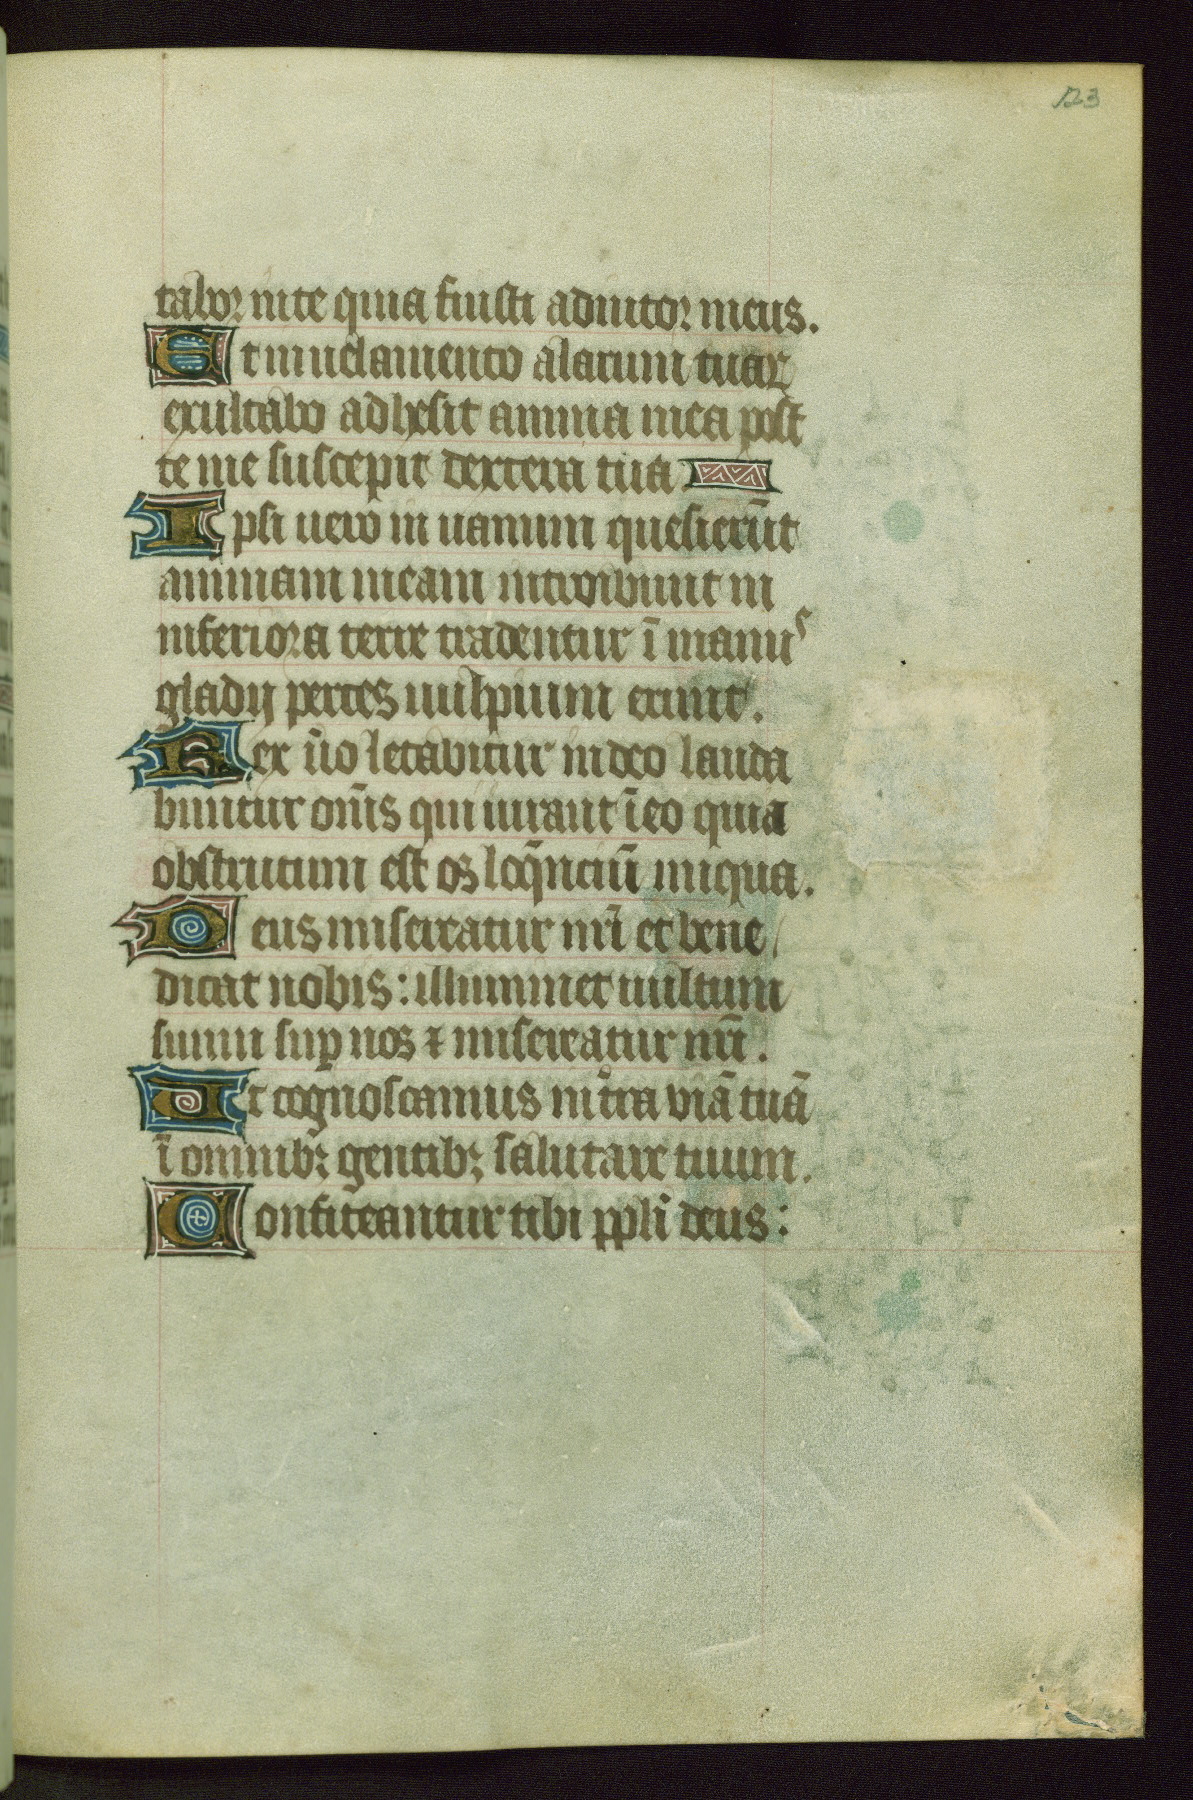 123
tabor in te quia fuisti adiutor meus.
Et in uelamento alarum tuar
exultabo adhesit anima mea post
te me suscepit dextera tua
Ipsi uero in uanum quesierūt
animam meam introibunt in
inferiora terre tradentur ī manus
gladij partes uulpium erunt.
Rex ūo letabitur in deo lauda
buntur om̄s qui iurant ī eo quia
obstructum est os loq̄nciū iniqua.
Deus misereatur nr̄i et bene
dicat nobis: illuminet uultum
suum sup nos ⁊ misereatur nr̄i.
Ut cognoscamus in tr̄a viā tuā
ī omnibꝫ gentibꝫ salutare tuum.
Confiteantur tibi ppl̄i deus: